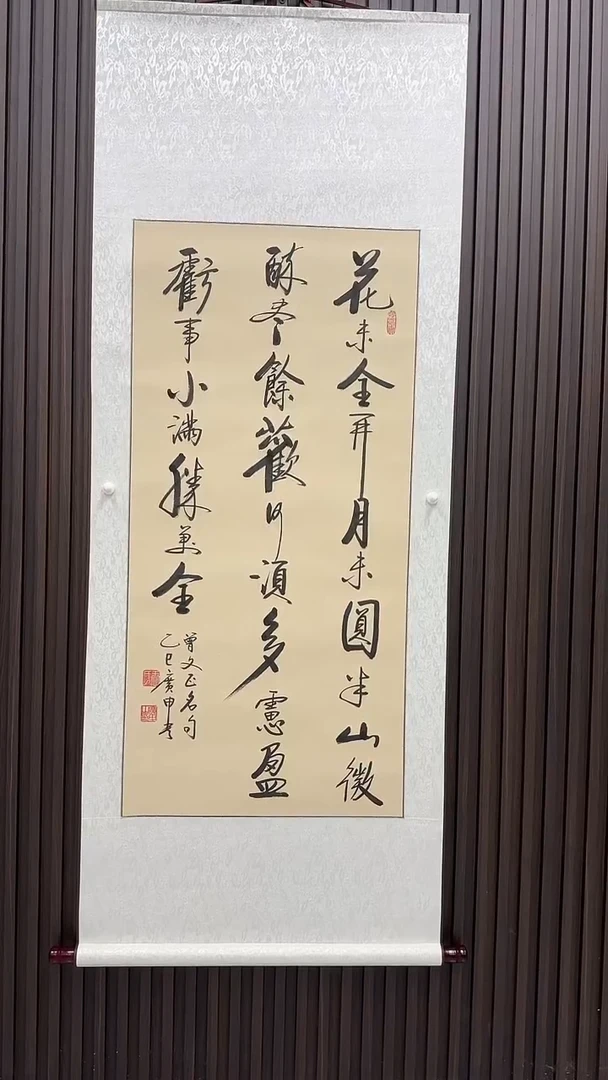 花未全開月未圓半山微
醉尽餘歡何須多慮盈
虧事小滿勝萬全
曾文正名句
乙巳廣申書